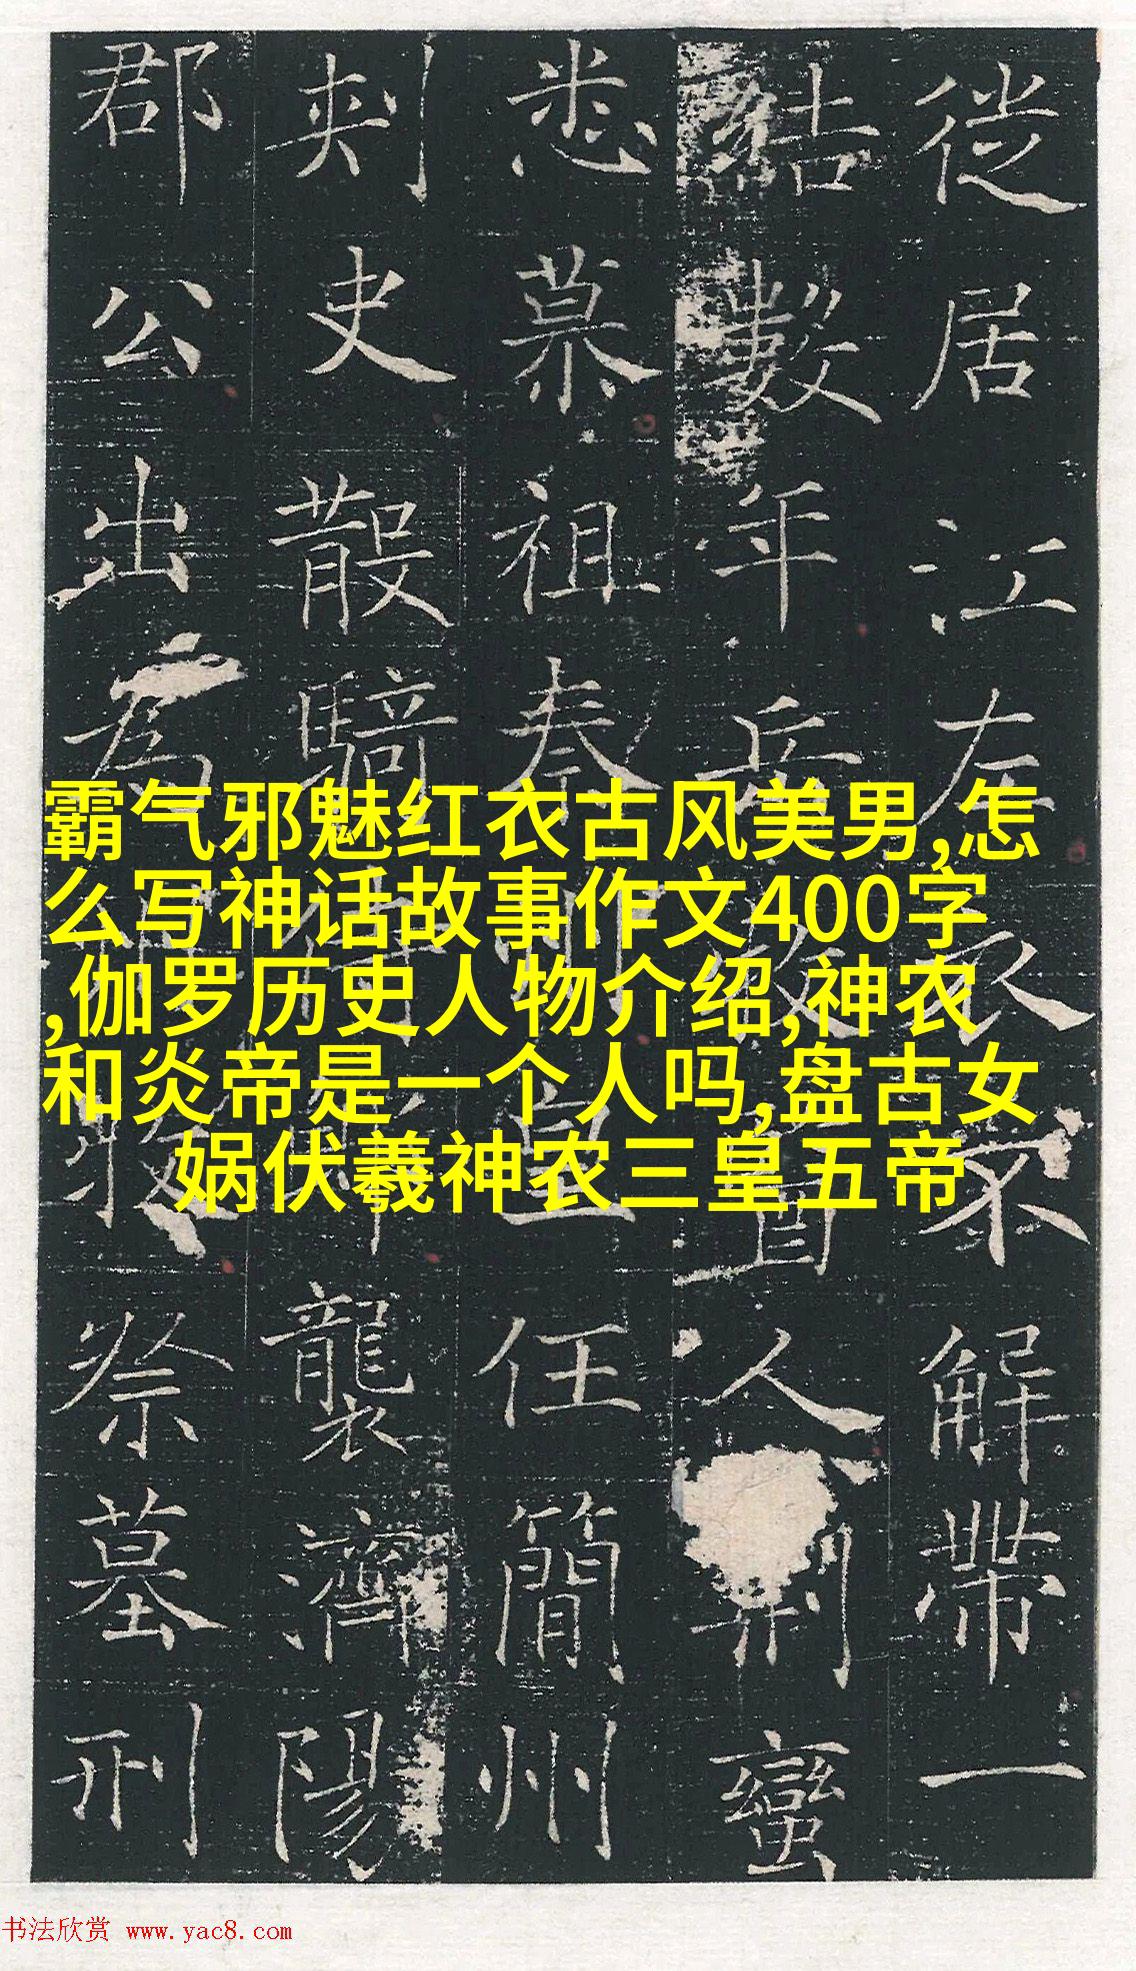 霸气邪魅红衣古风美男,怎
么写神话故事作文400字
,伽罗历史人物介绍,神农
和炎帝是一个人吗,盘古女
娲伏羲神农三皇五帝
徙居江左衣不解帶一
數年人荆蠻
悉慕祖秦皇任簡州
刺史散騎襲濟陽
郡公出為祭墓刑
书法欣赏 www.yac8.com